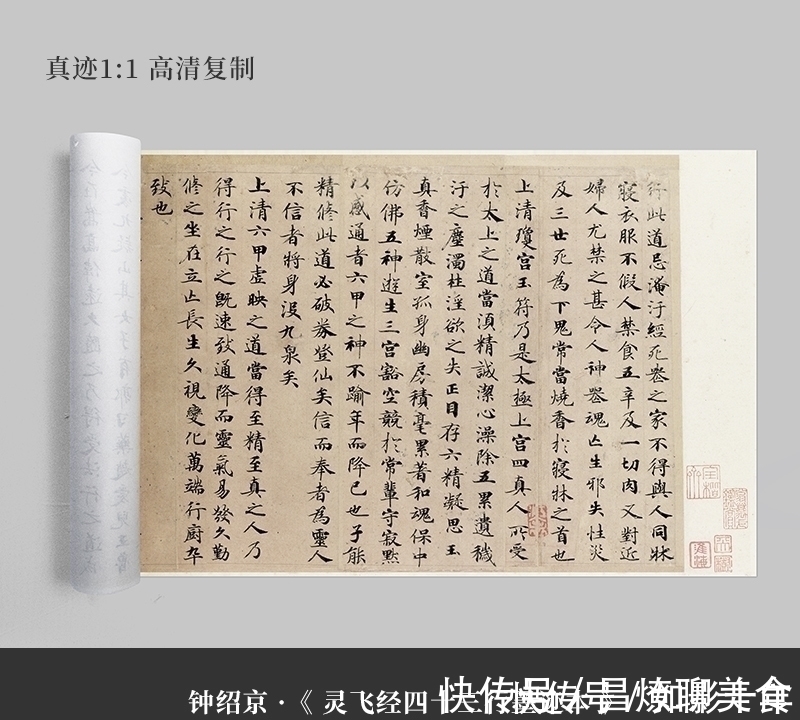 真迹1:1 高清复制
行此道忌淹汙經死喪之家不得與人同牀
寢衣服不假人禁食五辛及一切肉又對近
婦人尤禁之甚令人神喪魂亡生邪失性災
及三世死為下鬼常當燒香於寢牀之首也
上清瓊宮玉符乃是太極上宮四真人所受
於太上之道當須精誠潔心澡除五累遺穢
汙之塵濁杜淫欲之失正目存六精凝思玉
真香煙散室孤身幽房積毫累著和魂保中
仿佛五神遊生三宮豁空競於常輩守寂默
以感通者六甲之神不踰年而降已也子能
精修此道必破券登仙矣信而奉者為靈人
不信者將身沒九泉矣
上清六甲虛映之道當得至精至真之人乃
得行之行之既速致通降而靈氣易發久勤
修之坐在立亡長生久視變化萬端行廚卒
致也
钟绍京·《灵飞经四十
快传号